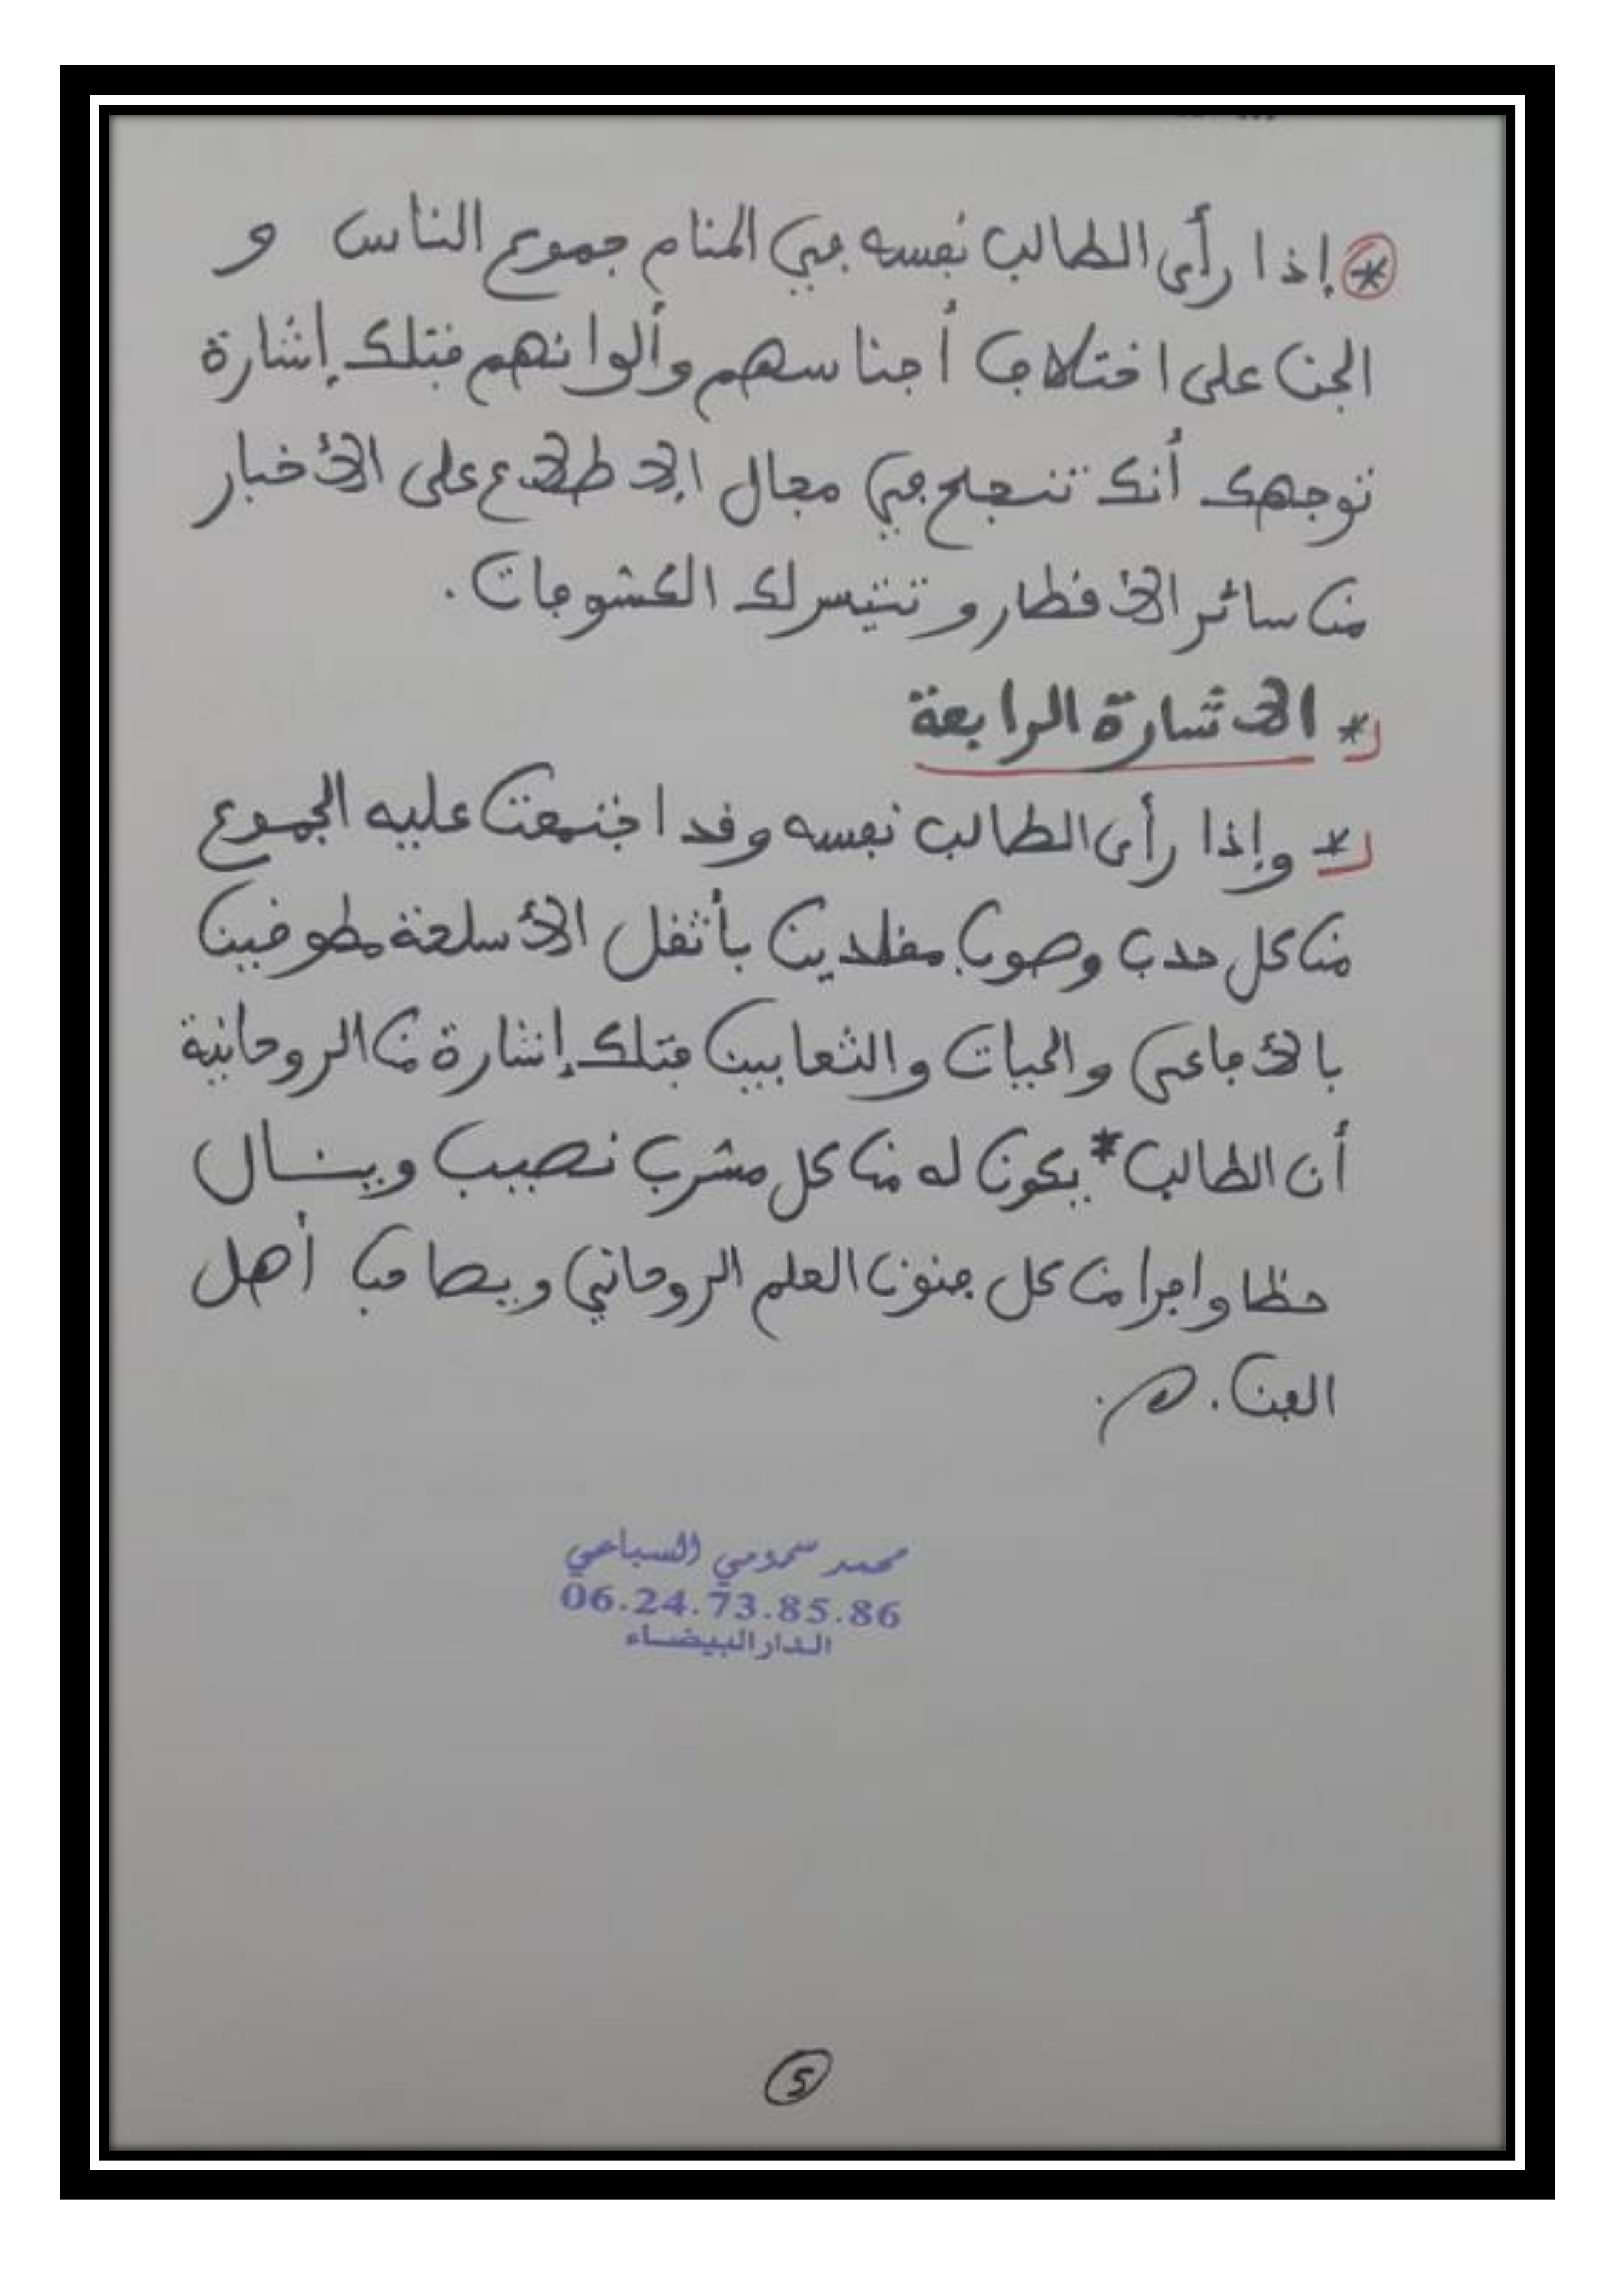 * إذا رأى الطالب نفسه في المنام جموع الناس و
الجن على اختلاف أجناسهم وألوانهم فتلك إشارة
توجهك أنك تنجح في مجال الإطلاع على الأخبار
من سائر الأقطار و تتيسر لك الكشوفات.
* الاشارة الرابعة
* وإذا رأى الطالب نفسه وقد اجتمعت عليه الجموع
من كل حدب وصوب مقلدين بأثقل الأسلحة مطوقين
بالأفاعي والحيات والثعابين فتلك إشارة من الروحانية
أن الطالب * يكون له من كل مشرب نصيب وينال
حظا وافرا من كل فنون العلم الروحاني ويصاحب أهل
الفن.
محمد سمومي السباعي
06.24.73.85.86
الدار البيضاء
5